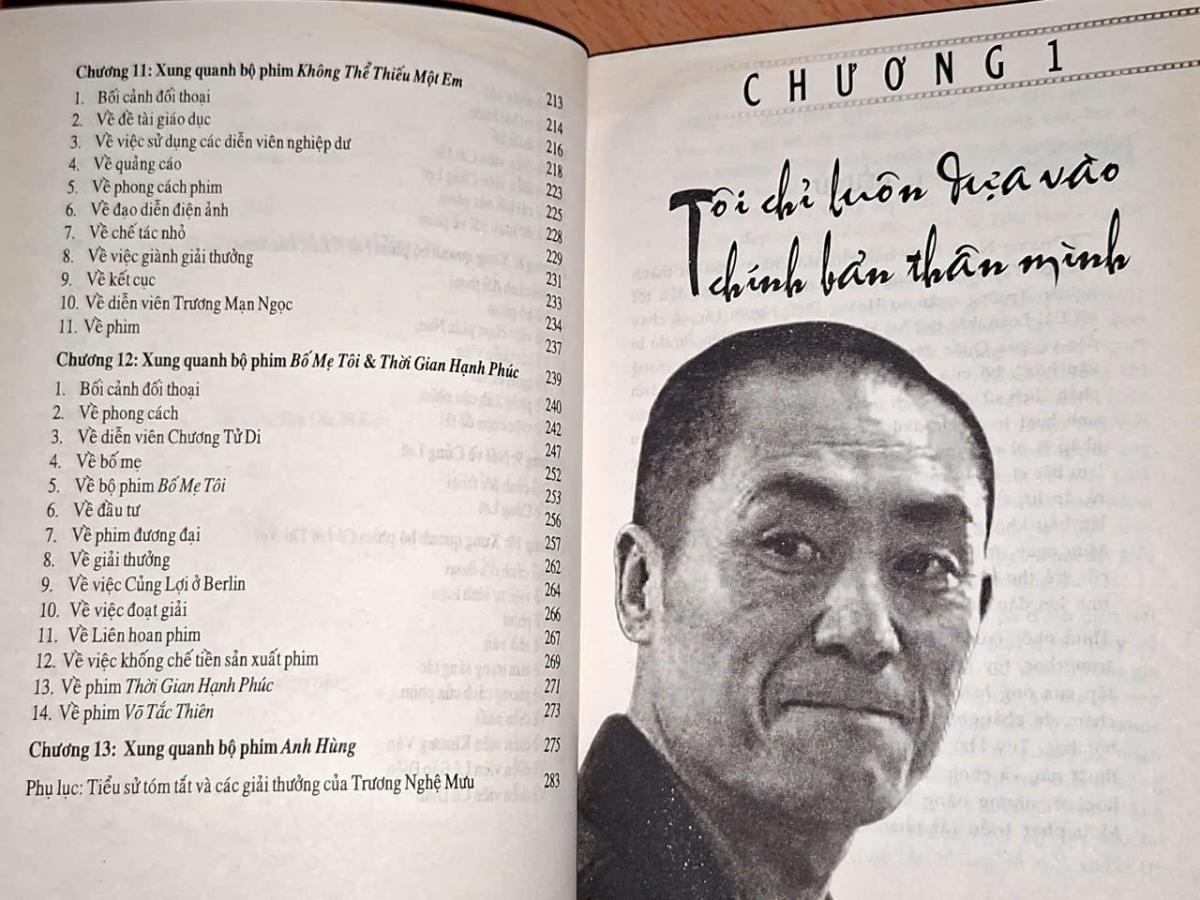 Chương 11: Xung quanh bộ phim Không Thể Thiếu Một Em 213
1. Bối cảnh đối thoại 214
2. Về đề tài giáo dục 216
3. Về việc sử dụng các diễn viên nghiệp dư 218
4. Về quảng cáo 223
5. Về phong cách phim 225
6. Về đạo diễn điện ảnh 228
7. Về chế tác nhỏ 229
8. Về việc giành giải thưởng 231
9. Về kết cục 233
10. Về diễn viên Trương Mạn Ngọc 234
11. Về phim 237
Chương 12: Xung quanh bộ phim Bố Mẹ Tôi & Thời Gian Hạnh Phúc 239
1. Bối cảnh đối thoại 240
2. Về phong cách 242
3. Về diễn viên Chương Tử Di 247
4. Về bố mẹ 252
5. Về bộ phim Bố Mẹ Tôi 253
6. Về đầu tư 256
7. Về phim đương đại 257
8. Về giải thưởng 262
9. Về việc Củng Lợi ở Berlin 264
10. Về việc đoạt giải 266
11. Về Liên hoan phim 267
12. Về việc khống chế tiền sản xuất phim 269
13. Về phim Thời Gian Hạnh Phúc 271
14. Về phim Võ Tắc Thiên 273
Chương 13: Xung quanh bộ phim Anh Hùng 275
Phụ lục: Tiểu sử tóm tắt và các giải thưởng của Trương Nghệ Mưu 283
CHƯƠNG 1
Tôi chỉ luôn dựa vào
chính bản thân mình